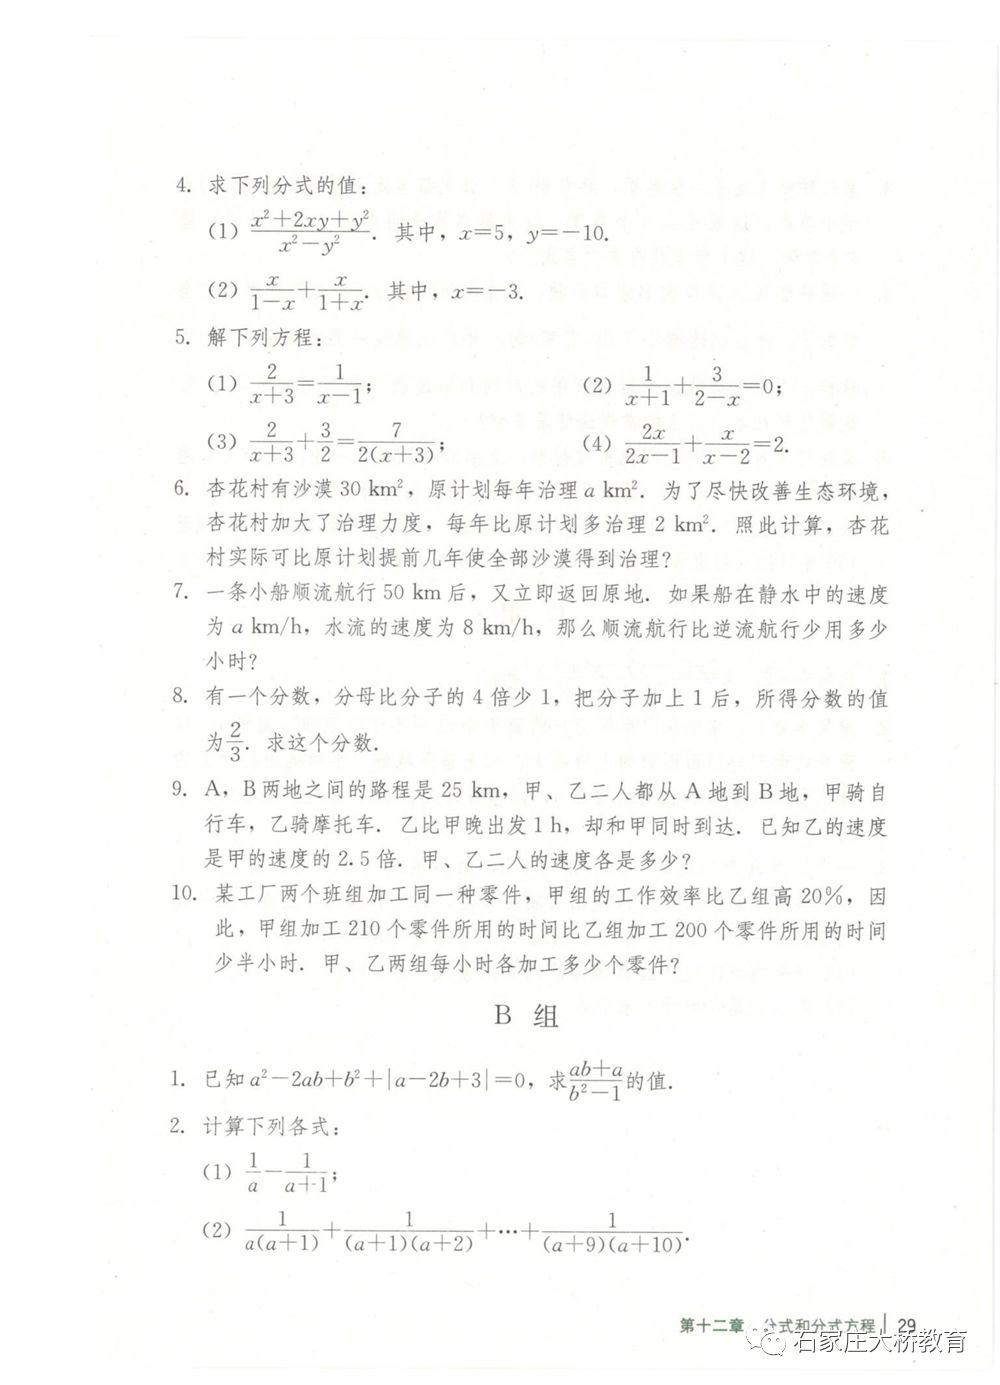 4. 求下列分式的值：
(1) $\frac{x^2+2xy+y^2}{x^2-y^2}$. 其中，x=5，y=-10.
(2) $\frac{x}{1-x}+\frac{x}{1+x}$. 其中，x=-3.
5. 解下列方程：
(1) $\frac{2}{x+3}=\frac{1}{x-1}$； (2) $\frac{1}{x+1}+\frac{3}{2-x}=0$；
(3) $\frac{2}{x+3}+\frac{3}{2}=\frac{7}{2(x+3)}$； (4) $\frac{2x}{2x-1}+\frac{x}{x-2}=2$.
6. 杏花村有沙漠 30 km²，原计划每年治理 a km². 为了尽快改善生态环境，
杏花村加大了治理力度，每年比原计划多治理 2 km². 照此计算，杏花
村实际可比原计划提前几年使全部沙漠得到治理？
7. 一条小船顺流航行 50 km 后，又立即返回原地. 如果船在静水中的速度
为 a km/h，水流的速度为 8 km/h，那么顺流航行比逆流航行少用多少
小时？
8. 有一个分数，分母比分子的 4 倍少 1，把分子加上 1 后，所得分数的值
为 $\frac{2}{3}$. 求这个分数.
9. A，B 两地之间的路程是 25 km，甲、乙二人都从 A 地到 B 地，甲骑自
行车，乙骑摩托车. 乙比甲晚出发 1 h，却和甲同时到达. 已知乙的速度
是甲的速度的 2.5 倍. 甲、乙二人的速度各是多少？
10. 某工厂两个班组加工同一种零件，甲组的工作效率比乙组高 20%，因
此，甲组加工 210 个零件所用的时间比乙组加工 200 个零件所用的时间
少半小时. 甲、乙两组每小时各加工多少个零件？
B 组
1. 已知 a²-2ab+b²+|a-2b+3|=0，求 $\frac{ab+a}{b^2-1}$ 的值.
2. 计算下列各式：
(1) $\frac{1}{a}-\frac{1}{a+1}$；
(2) $\frac{1}{a(a+1)}+\frac{1}{(a+1)(a+2)}+\cdots+\frac{1}{(a+9)(a+10)}$.
第十二章 分式和分式方程 29
石家庄大桥教育